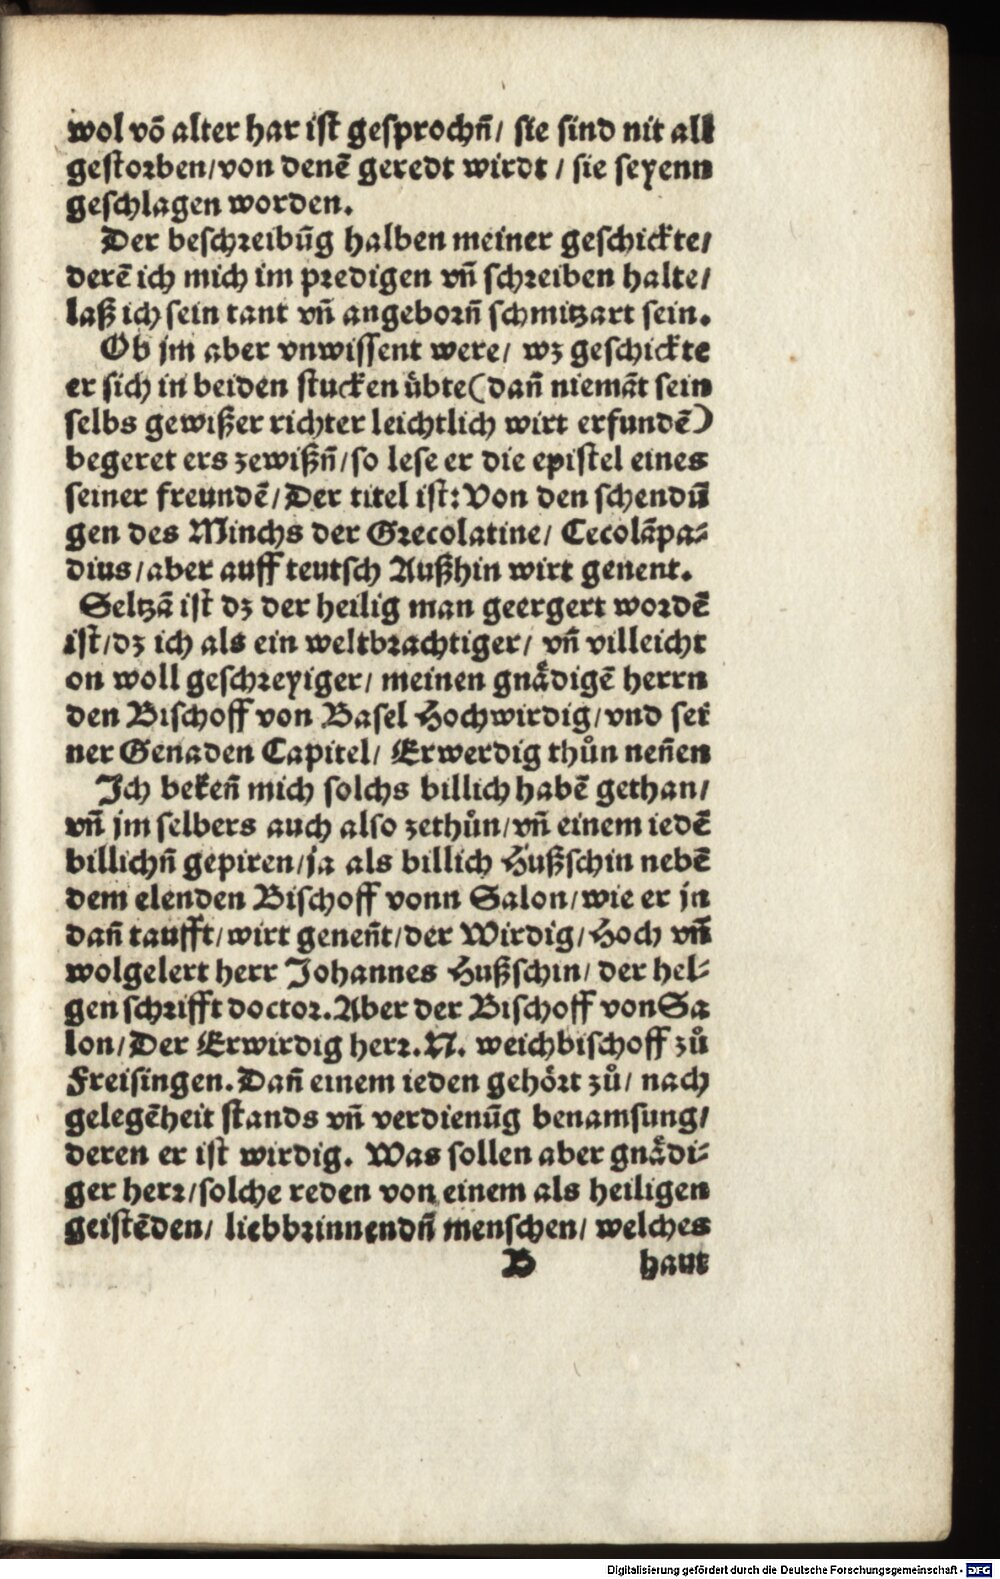 wol võ alter har ist gesprochñ/ sie sind nit all
gestorben/von denẽ geredt wirdt/ sie seyenn
geschlagen worden.
Der beschreibũg halben meiner geschickte/
derẽ ich mich im predigen vñ schreiben halte/
laß ich sein tant vñ angebornñ schmitzart sein.
Ob jm aber vnwissent were/ wz geschickte
er sich in beiden stucken übte(dañ niemãt sein
selbs gewißer richter leichtlich wirt erfundẽ)
begeret ers zewißñ/so lese er die epistel eines
seiner freundẽ/Der titel ist: Von den schendũ
gen des Minchs der Grecolatine/ Cecolãpa⸗
dius/aber auff teutsch Außhin wirt genent.
Seltzã ist dz der heilig man geergert wordẽ
ist/dz ich als ein weltbrachtiger/ vñ villeicht
on woll geschreyiger/ meinen gnaͤdigẽ herrn
den Bischoff von Basel Hochwirdig/vnd sei
ner Genaden Capitel/ Erwerdig thůn neñen
Ich bekeñ mich solchs billich habẽ gethan/
vñ jm selbers auch also zethůn/vñ einem iedẽ
billichñ gepiren/ja als billich Hußschin nebẽ
dem elenden Bischoff vonn Salon/wie er jn
dañ taufft/wirt geneñt/der Wirdig/Hoch vñ
wolgelert herr Johannes Hußschin/ der hel⸗
gen schrifft doctor. Aber der Bischoff von Sa
lon/Der Erwirdig herr. N. weichbischoff zů
Freisingen. Dañ einem ieden gehoͤrt zů/ nach
gelegẽheit stands vñ verdienũg benamsung/
deren er ist wirdig. Was sollen aber gnaͤdi⸗
ger herr/solche reden von einem als heiligen
geistẽden/ liebbrinnendñ menschen/ welches
B haut
Digitalisierung gefördert durch die Deutsche Forschungsgemeinschaft - DFG